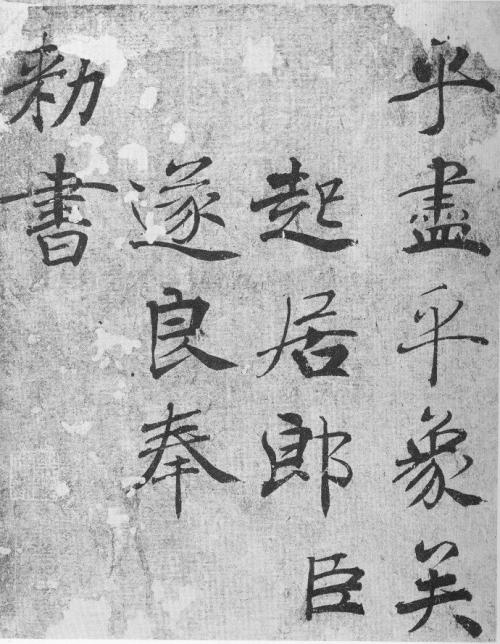 乎盡乎象矣
起居郎臣
遂良奉
勑書